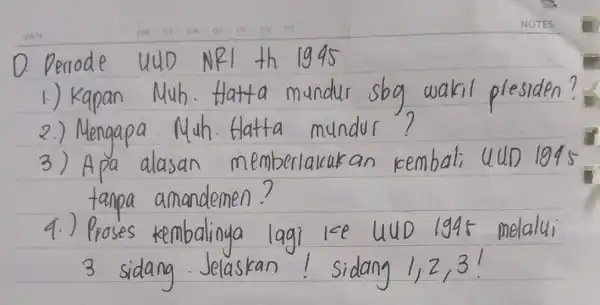 NOTES
DATE
D. Periode UUD NRI th 1945
1.) Kapan Muh. Hatta mundur sbg wakil presiden?
2.) Mengapa Muh. Hatta mundur ?
3) Apa alasan memberlakukan kembali UUD 1945
tanpa amandemen ?
4.) Proses kembalinya lagi ke UUD 1945 melalui
3 sidang. Jelaskan ! Sidang 1, 2, 3!